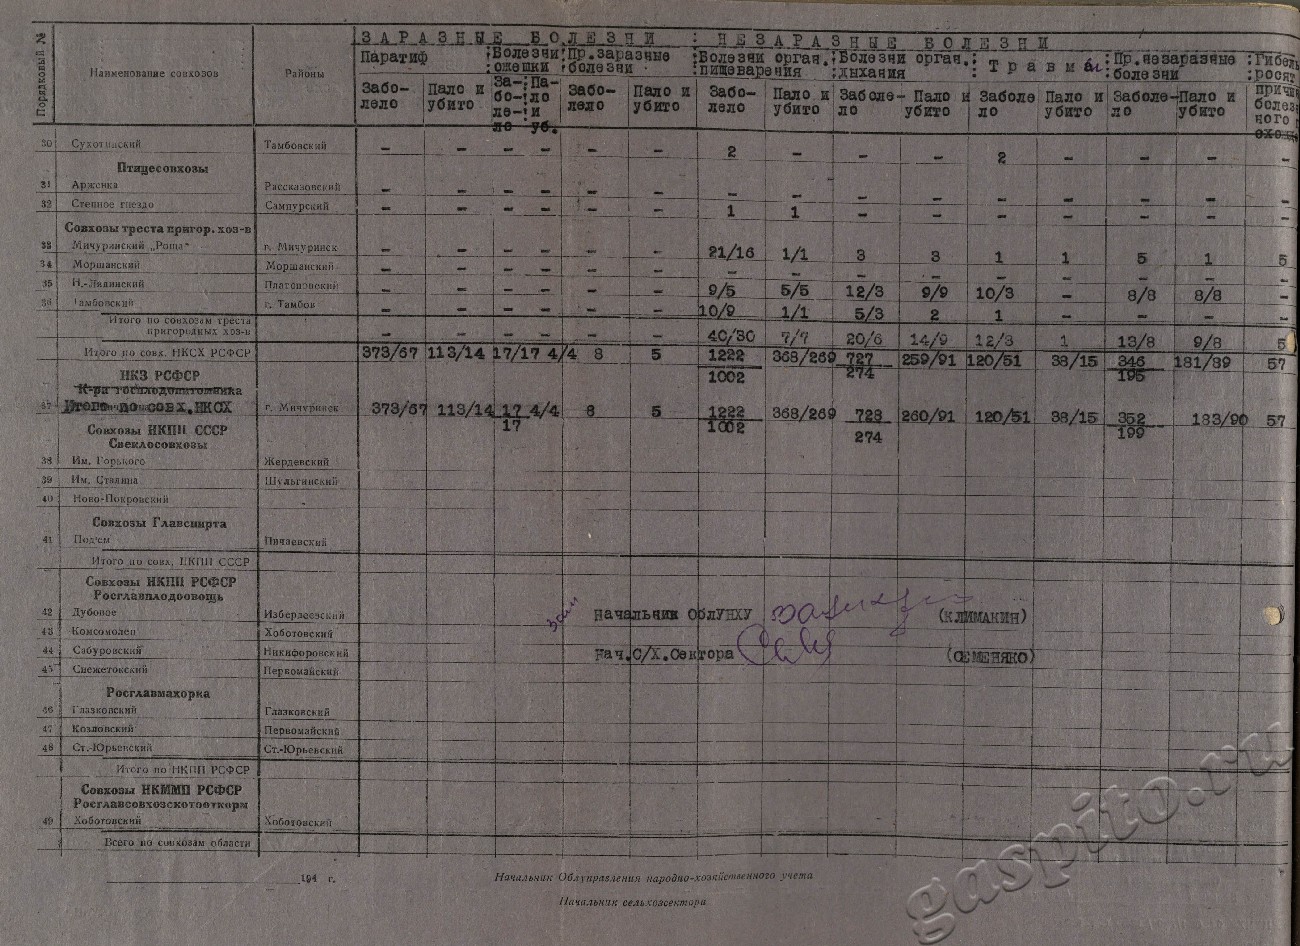 ЗАРАЗНЫЕ БОЛЕЗНИ : НЕЗАРАЗНЫЕ БОЛЕЗНИ
Порядковый № Наименование совхозов Районы Паратиф :Болезни :Пр.заразные Болезни орган.:Болезни орган.: Травмы :Пр.незаразные :Гибель
:ошешки :болезни пищеварения :дыхания :болезни :росят
Забо- Пало и За- :Па- Забо- Пало и Забо- Пало и Заболе- Пало и Заболе Пало и Заболе- Пало и причи
лело убито бо- :ло лело убито лело убито ло убито ло убито ло убито болез
ле- :и ного
ло уб.
30 Сухотинский Тамбовский – – – – – – 2 – – – 2 – – – –
Птицесовхозы
31 Арженка Рассказовский – – – – – – – – – – – – – – –
32 Степное гнездо Сампурский – – – – – – 1 1 – – – – – – –
Совхозы треста пригор. хоз-в
33 Мичуринский „Роща“ г. Мичуринск – – – – – – 21/16 1/1 3 3 1 1 5 1 5
34 Моршанский Моршанский – – – – – – – – – – – – – – –
35 Н.-Лядинский Платоновский – – – – – – 9/5 5/5 12/3 9/9 10/3 – 8/8 8/8 –
36 Тамбовский г. Тамбов – – – – – – 10/9 1/1 5/3 2 1
Итого по совхозам треста
пригородных хоз-в – – – – – – 40/30 7/7 20/6 14/9 12/3 1 13/8 9/8 5
Итого по совх. НКСХ РСФСР 373/67 113/14 17/17 4/4 8 5 1222 368/269 727 259/91 120/51 38/15 346 181/89 57
1002 274 195
НКЗ РСФСР
К-ра госплодопитомника
37 Итого по совх.НКСХ г. Мичуринск 373/67 113/14 17 4/4 8 5 1222 368/269 728 260/91 120/51 38/15 352 183/90 57
17 1002 274 199
Совхозы НКПП СССР
Свеклосовхозы
38 Им. Горького Жердевский
39 Им. Сталина Шульгинский
40 Ново-Покровский
Совхозы Главспирта
41 Под'ем Пичаевский
Итого по совх. НКПП СССР
Совхозы НКПП РСФСР
Росглавплодоовощь
42 Дубовое Избердеевский Начальник ОблУНХУ (КЛИМАКИН)
43 Комсомолец Хоботовский
44 Сабуровский Никифоровский Нач.С/Х.Сектора (СЕМЕНЯКО)
45 Снежетокский Первомайский
Росглавмахорка
46 Глазковский Глазковский
47 Козловский Первомайский
48 Ст.-Юрьевский Ст.-Юрьевский
Итого по НКПП РСФСР
Совхозы НКММП РСФСР
Росглавсовхозскотооткорм
49 Хоботовский Хоботовский
Всего по совхозам области
194 г. Начальник Облуправления народно-хозяйственного учета
Начальник сельхозсектора
gaspito.ru